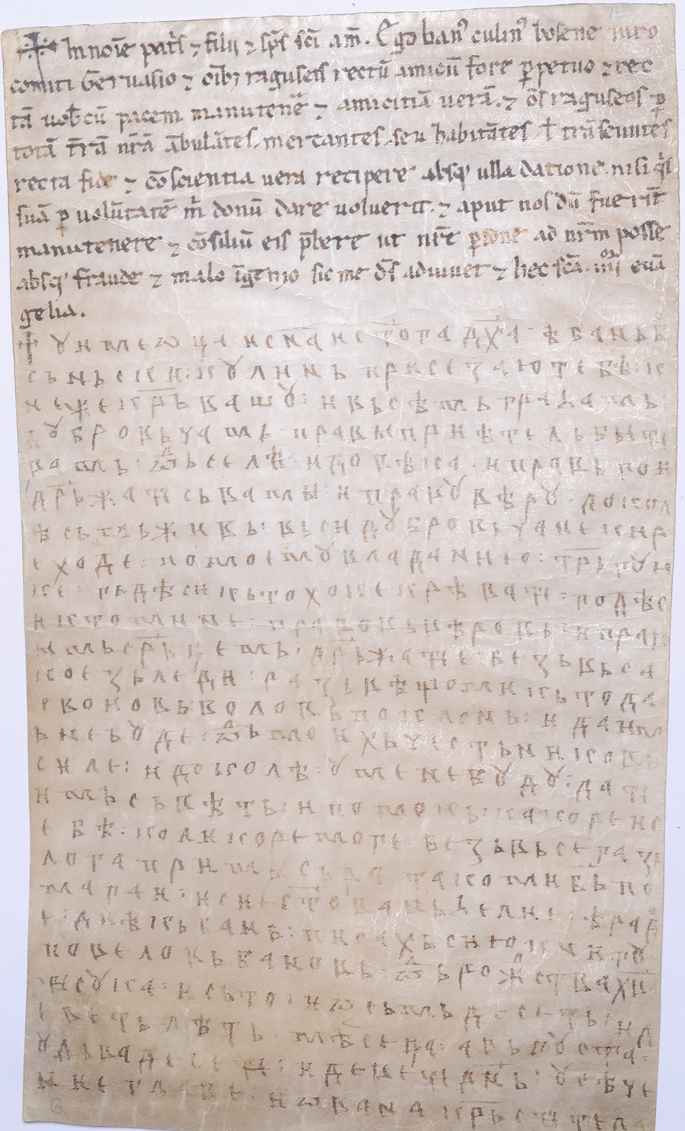 ☩ In noīe pat̄s ⁊ filii ⁊ sp̄s s̄ci am̄. Ego ban᾽ culin᾽ bosene iuro
comiti Geruasio ⁊ oīb; raguseis rectū amicū fore ꝑpetuo ⁊ rec
tā uob̄cū pacem manutenēr ⁊ amicitiā uerā. ⁊ om̄s raguseos ꝑ
totā t̄rā nr̄ā ābulātes. mercantes. seu habitātes. ł trāseuntes
recta fide ⁊ cōscientia uera recipere absq; ulla datione. nisi q̄s
suā ꝑ volūtatē m̄ donū dare uoluerit. ⁊ aput nos dū fuerīt
manutenere ⁊ cōsiliū eis p̄bere ut nr̄e ꝑsone ad nr̄m posse
absq; fraude ⁊ malo īgenio sic me d̄s adiuuet ⁊ hec s̄cā. iiii᾽ͦʳ euā
gelia.
☩ ꙋ име ѡца и сн҃а и ст҃ога дх҃а · ѣ бань б
сьньски : кꙋлинь присезаю тебѣ : к
неже кр҃ьвашꙋ : и вьсѣмь граҕамь
дꙋбровьчамь · правы приѣтель быти
вамь : ѿ селѣ : и до вѣка · и правь гои
др҃ьжати сь вами : и правꙋ вѣрꙋ · докол
ѣ сьмь живь : вьси дꙋбровьчане кир
е ходе · по моемꙋ владанию : тр҃ьгꙋю
ке · гьдѣ си кьто хоке крѣвати · годѣ с
и кто мине · правовь вѣровь · и прав
имь ср҃ьцемь · др҃ьжати е · безь вьса
кое зьледи · развѣ що ми кьто да
своиовь воловь поклонь : и да имь
не бꙋде : ѿ моихь чьстьниковь
силе : и доколѣ · ꙋ мене бꙋдꙋ : дати
имь сьвѣть : и помокь : какоре и с
ебѣ : коликоре моге · безь вьсега зь
лога примысьла · тако ми б҃ь по
магаи : и сие с҃то еваньҕелие · ѣ рад
е · диѣкь бань · писахь сию книгꙋ
повеловь бановь : ѿ рож҃ства хв҃а
тисꙋка · и сьто · и ѡсьмьдесеть : и д
еветь лѣть · мѣсеца · авьгꙋста ·
ꙋ дьвадесети : и девети днь · ꙋсѣче
ние главе · иѡвана кр҃ьстителѣ